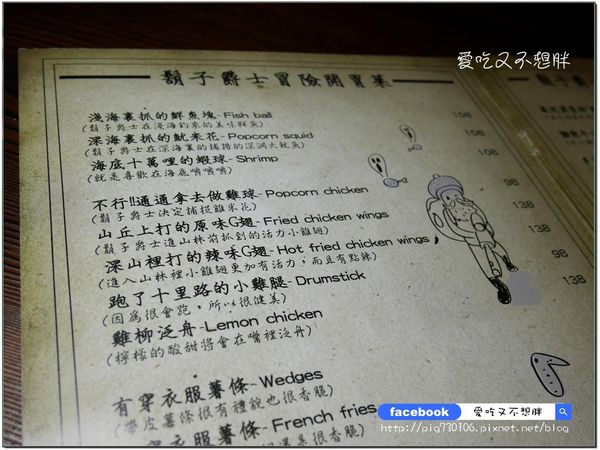 愛吃又不想胖
鬍子爵士冒險開胃菜
淺海裏抓的鮮魚塊-Fish ball 108
(鬍子爵士在淺海釣來的美味鮮魚)
深海裏抓的魷米花-Popcorn squid 108
(鬍子爵士在深海裏的捕捉的深洞大魷魚)
海底十萬哩的蝦球-Shrimp 138
(就是喜歡在海底嘶嘶嘶)
不行!!通通拿去做雞球-Popcorn chicken 98
(鬍子爵士決定捕捉雞米花)
山丘上打的原味G翅-Fried chicken wings 138
(鬍子爵士進山林前抓到的活力小雞翅)
深山裡打的辣味G翅-Hot fried chicken wings
(進入山林裡小雞翅更加有活力,而且有點辣)
跑了十里路的小雞腿-Drumstick 98
(因為很會跑,所以很健美)
雞柳泛舟-Lemon chicken 138
(檸檬的酸甜將會在嘴裡泛舟)
有穿衣服薯條-Wedges
(帶皮薯條很有禮貌也很香脆)
穿衣服薯條-French fries
很香脆)
facebook 愛吃又不想胖
http://pig730106.pixnet.net/blog